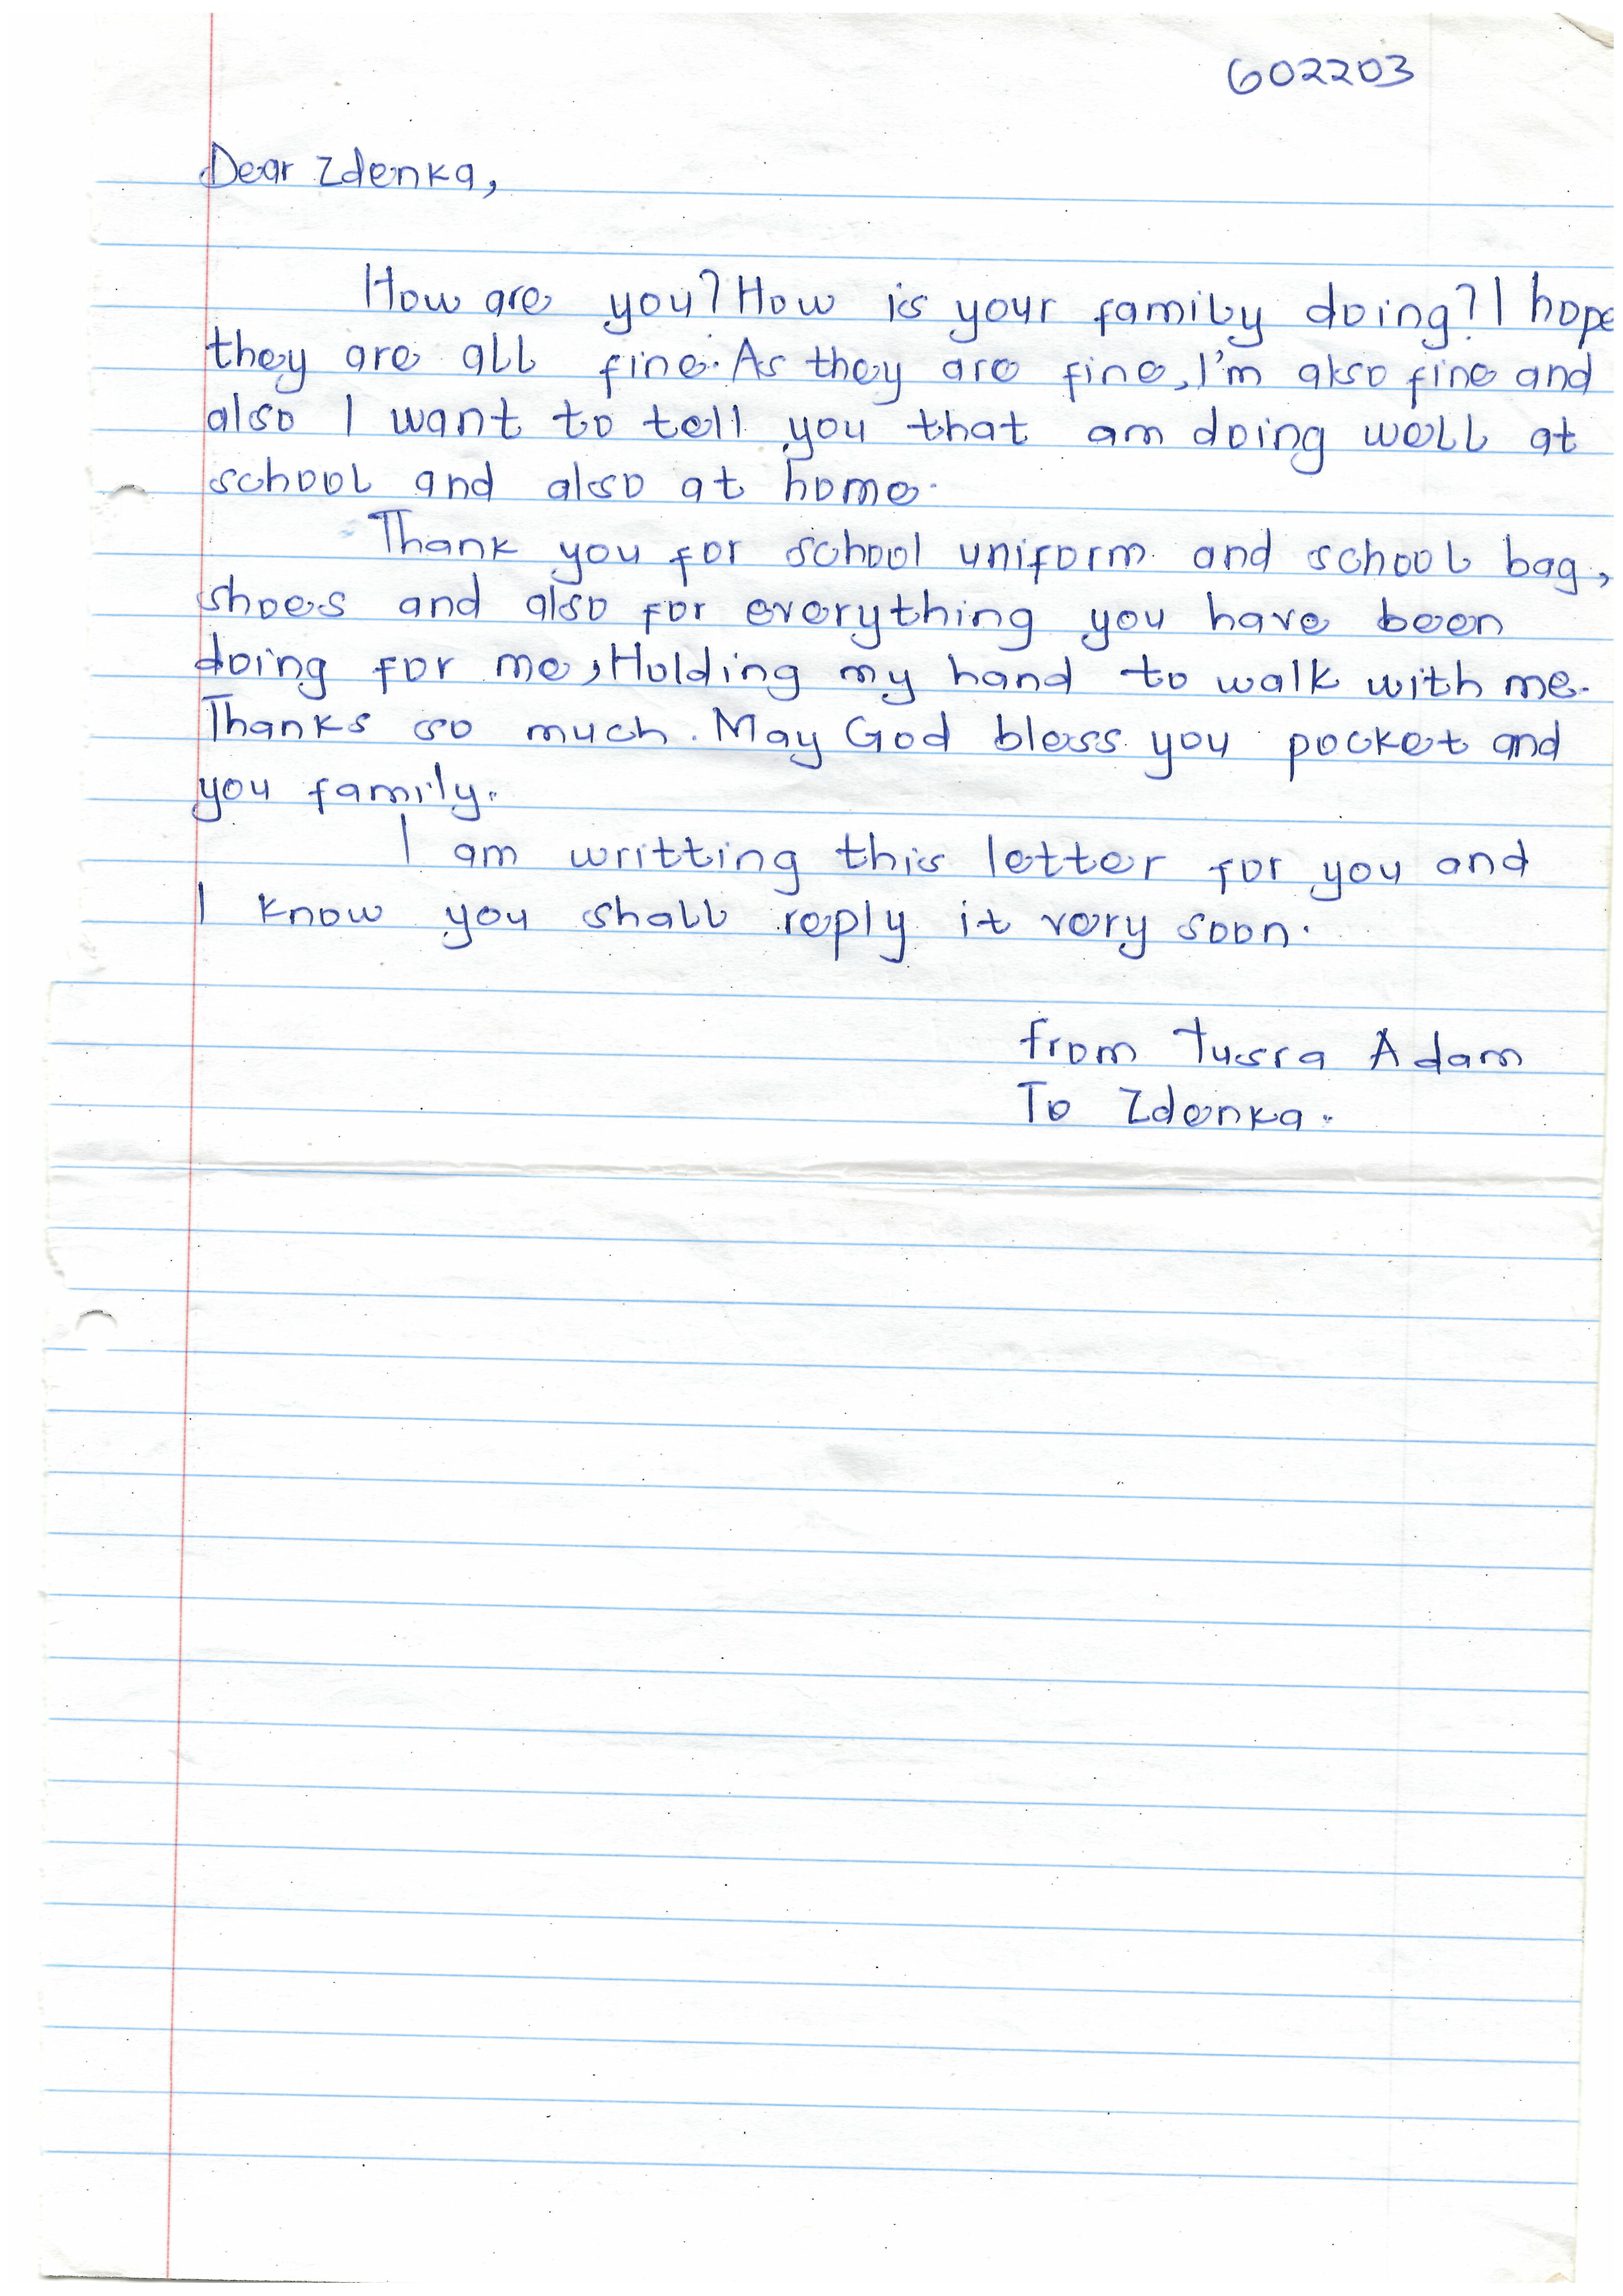 602203
Dear Zdenka,
How are you? How is your family doing? I hope
they are all fine. As they are fine, I'm also fine and
also I want to tell you that am doing well at
school and also at home.
Thank you for school uniform and school bag,
shoes and also for everything you have been
doing for me, Holding my hand to walk with me.
Thanks so much. May God bless you pocket and
you family.
I am writting this letter for you and
I know you shall reply it very soon.
from Tusra Adam
To Zdenka.